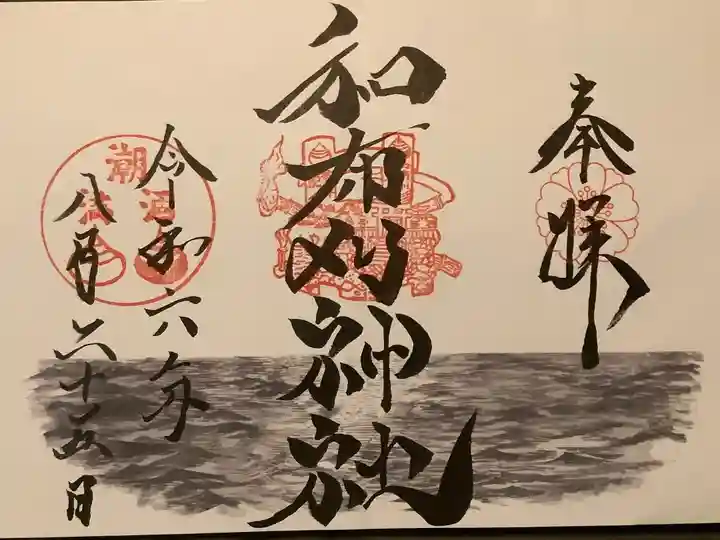 奉拝
和布刈神社
令和六年
八月二十五日
潮
満